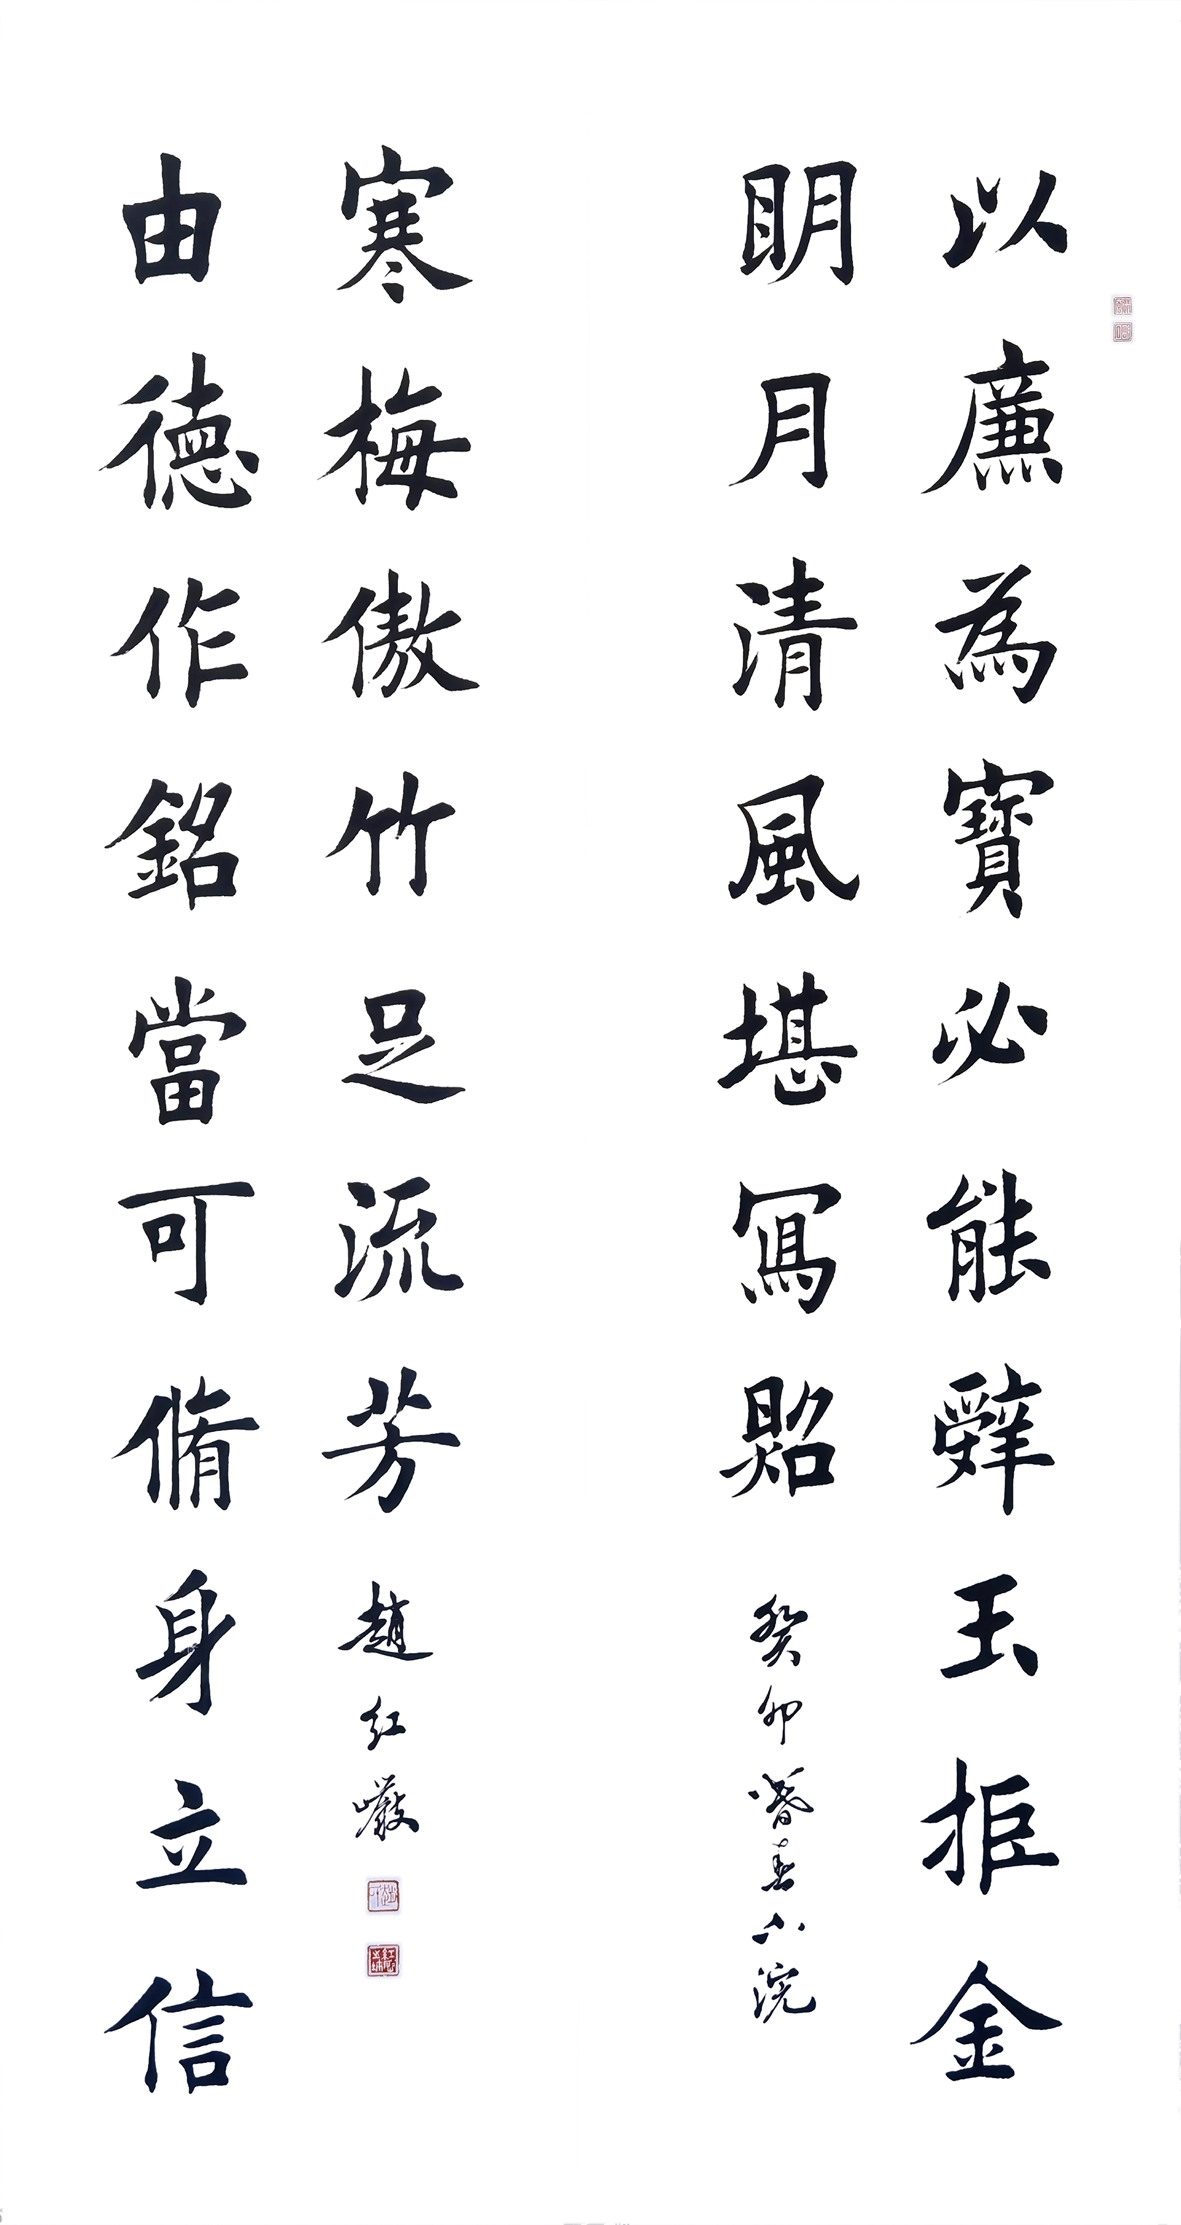 以廉為寶必能辤玉拒金
眀月清風堪寫照
癸卯春下浣
由德作銘當可脩身立信
寒梅傲竹足流芳
趙紅巖